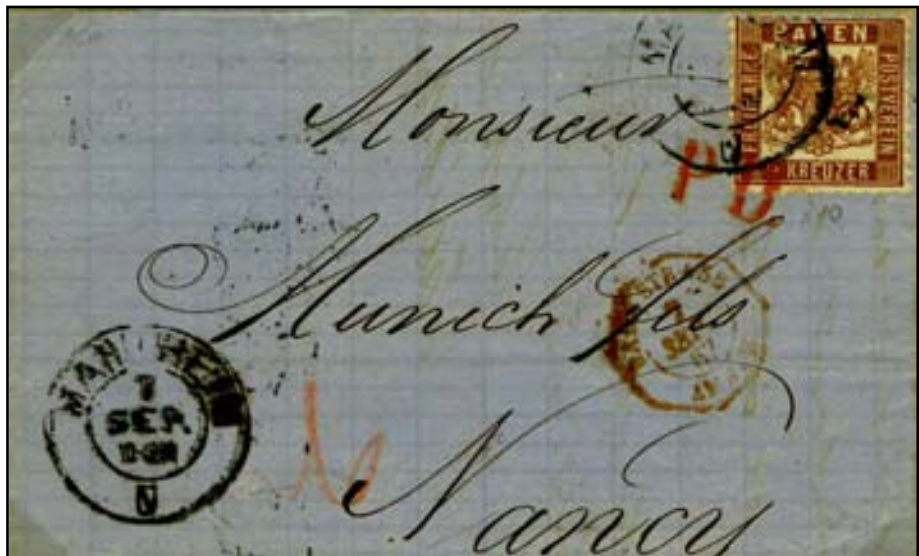 BADEN
FREIMARKE
POSTVEREIN
KREUZER
Monsieur
PD
Munich fils
MANNHEIM
7
SEP.
N
Nancy